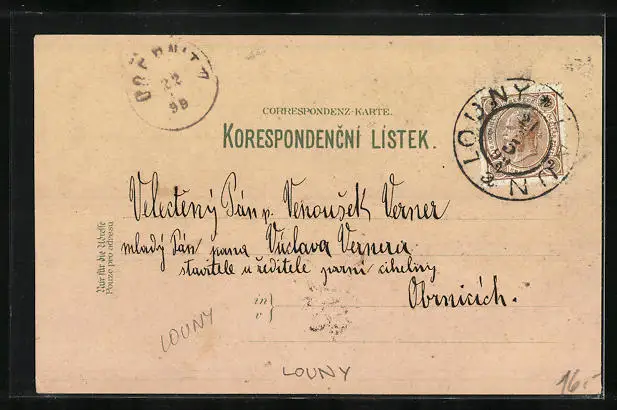 OBERNITZ
22
98
CORRESPONDENZ-KARTE.
KORESPONDENČNÍ LÍSTEK.
LOUNY
LAUN
Velectěný Pán p. Venoušek Verner
mladý Pán pana Václava Vernera
stavitele u ředitele parní cihelny
in
v
Obrnicích.
Nur für die Adresse
Pouze pro adresu
LOUNY
LOUNY
16.-